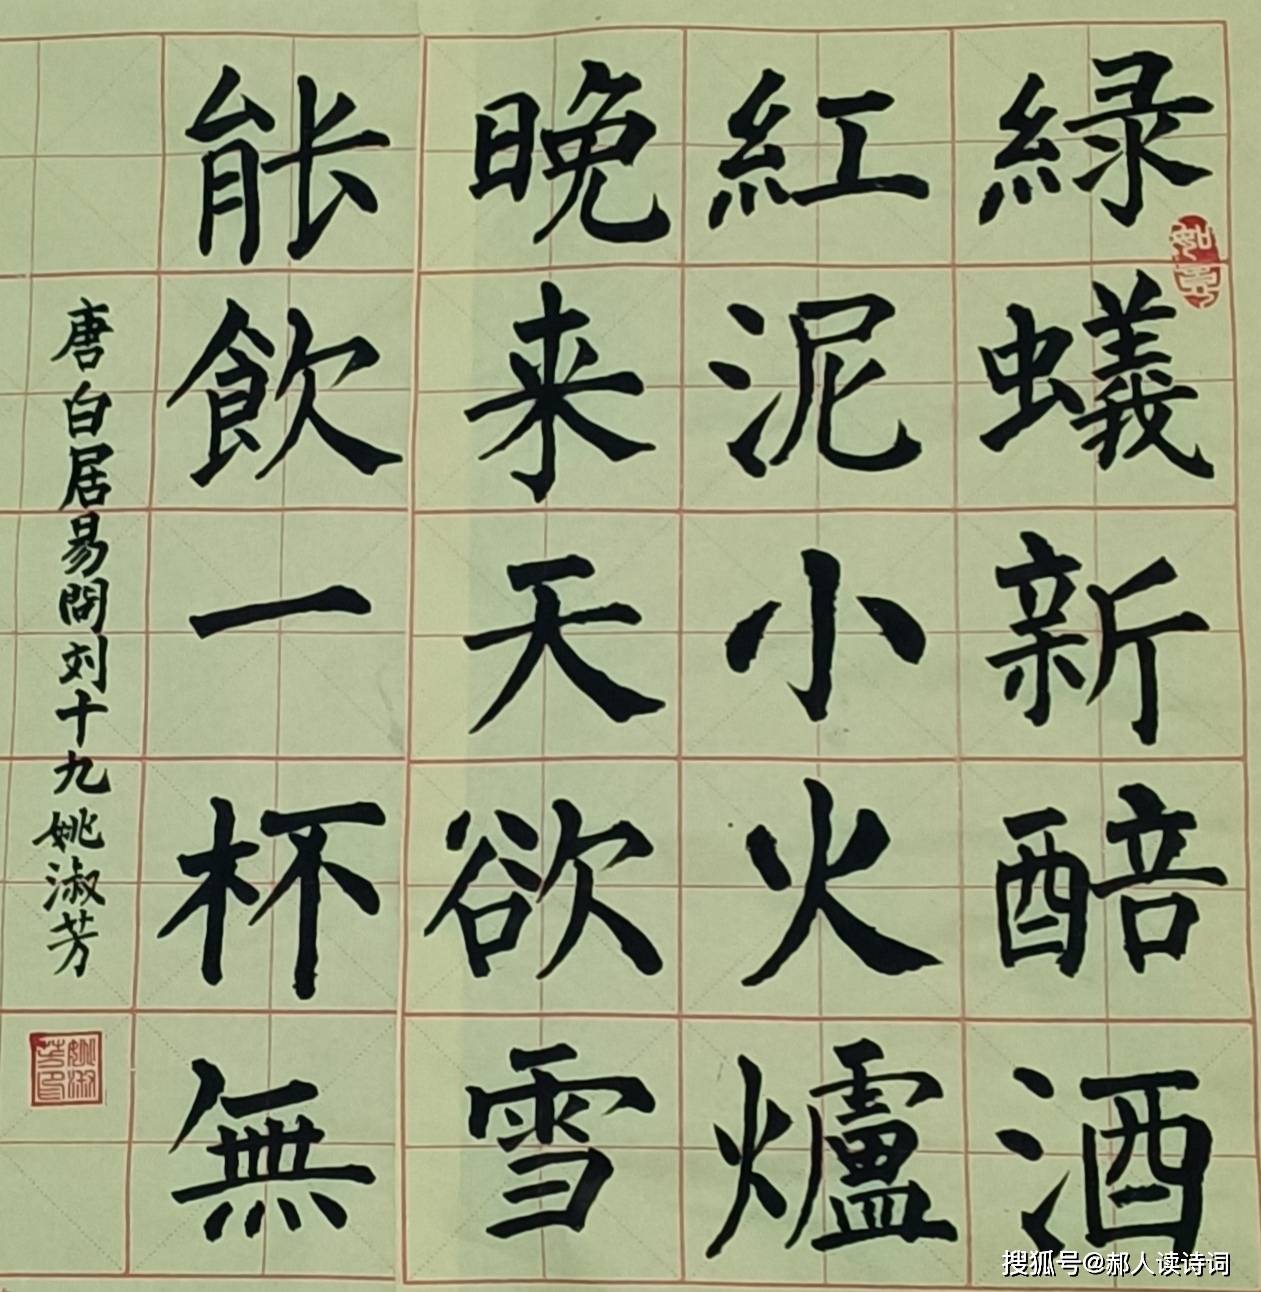 緑蟻新醅酒
紅泥小火爐
晚来天欲雪
能飲一杯無
唐白居易問刘十九姚淑芳
如意
姚淑芳印
搜狐号@郝人读诗词